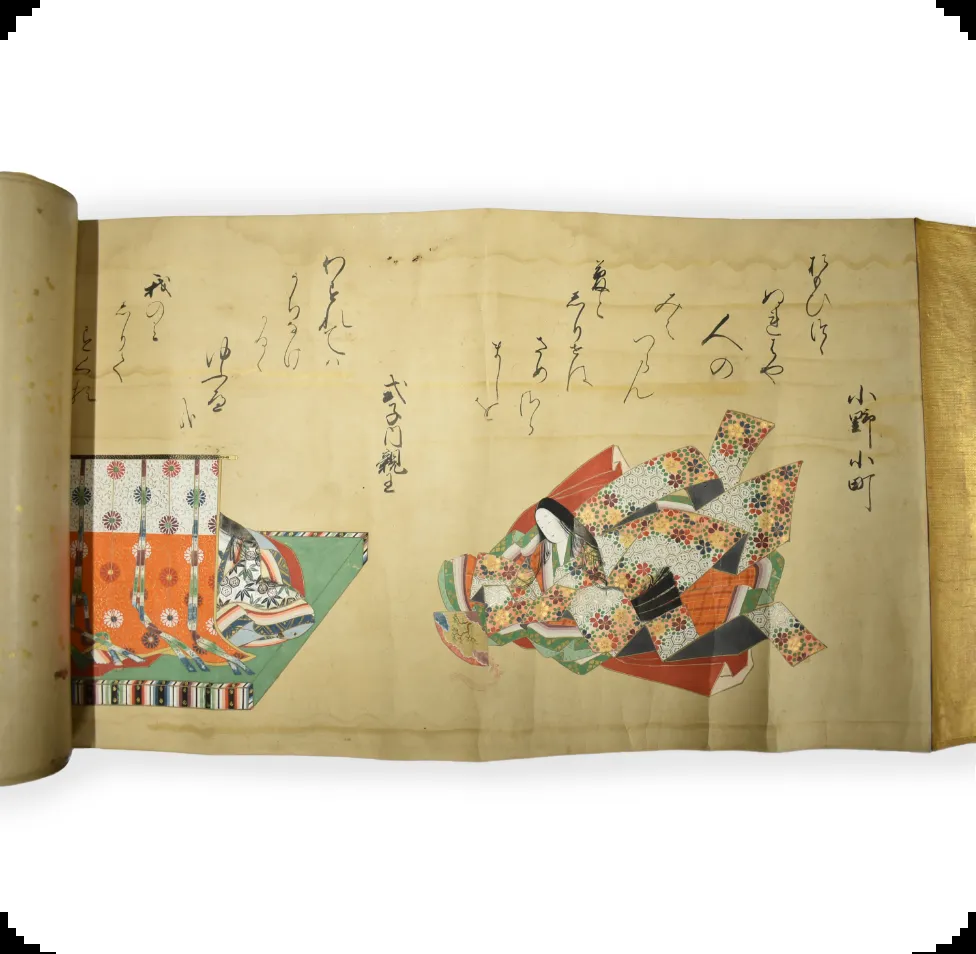 小野小町
おもひつゝ
ぬればや
人の
みえ
つらん
夢と
しりせば
さめ
つら
ましを
式子内親王
わすれては
うちなげ
かるゝ
ゆふべ
哉
我のみ
しりて